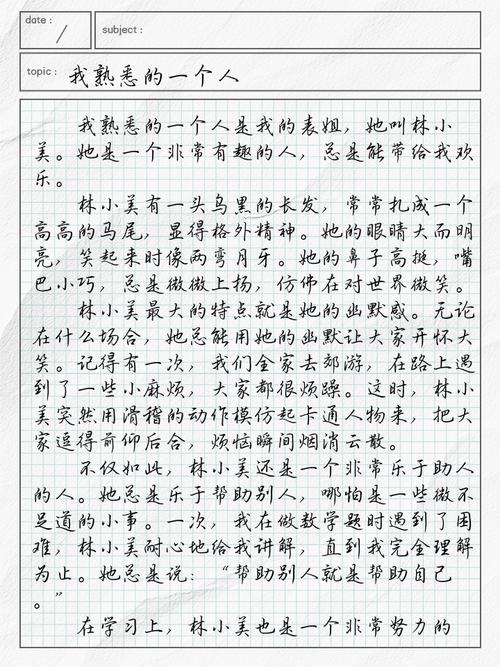 date :
subject :
topic : 我熟悉的一个人
我熟悉的一个人是我的表姐，她叫林小
美。她是一个非常有趣的人，总是能带给我欢
乐。
林小美有一头乌黑的长发，常常扎成一个
高高的马尾，显得格外精神。她的眼睛大而明
亮，笑起来时像两弯月牙。她的鼻子高挺，嘴
巴小巧，总是微微上扬，仿佛在对世界微笑。
林小美最大的特点就是她的幽默感。无论
在什么场合，她总能用她的幽默让大家开怀大
笑。记得有一次，我们全家去郊游，在路上遇
到了一些小麻烦，大家都很烦躁。这时，林小
美突然用滑稽的动作模仿起卡通人物来，把大
家逗得前仰后合，烦恼瞬间烟消云散。
不仅如此，林小美还是一个非常乐于助人
的人。她总是乐于帮助别人，哪怕是一些微不
足道的小事。一次，我在做数学题时遇到了困
难，林小美耐心地给我讲解，直到我完全理解
为止。她总是说：“帮助别人就是帮助自己
。”
在学习上，林小美也是一个非常努力的